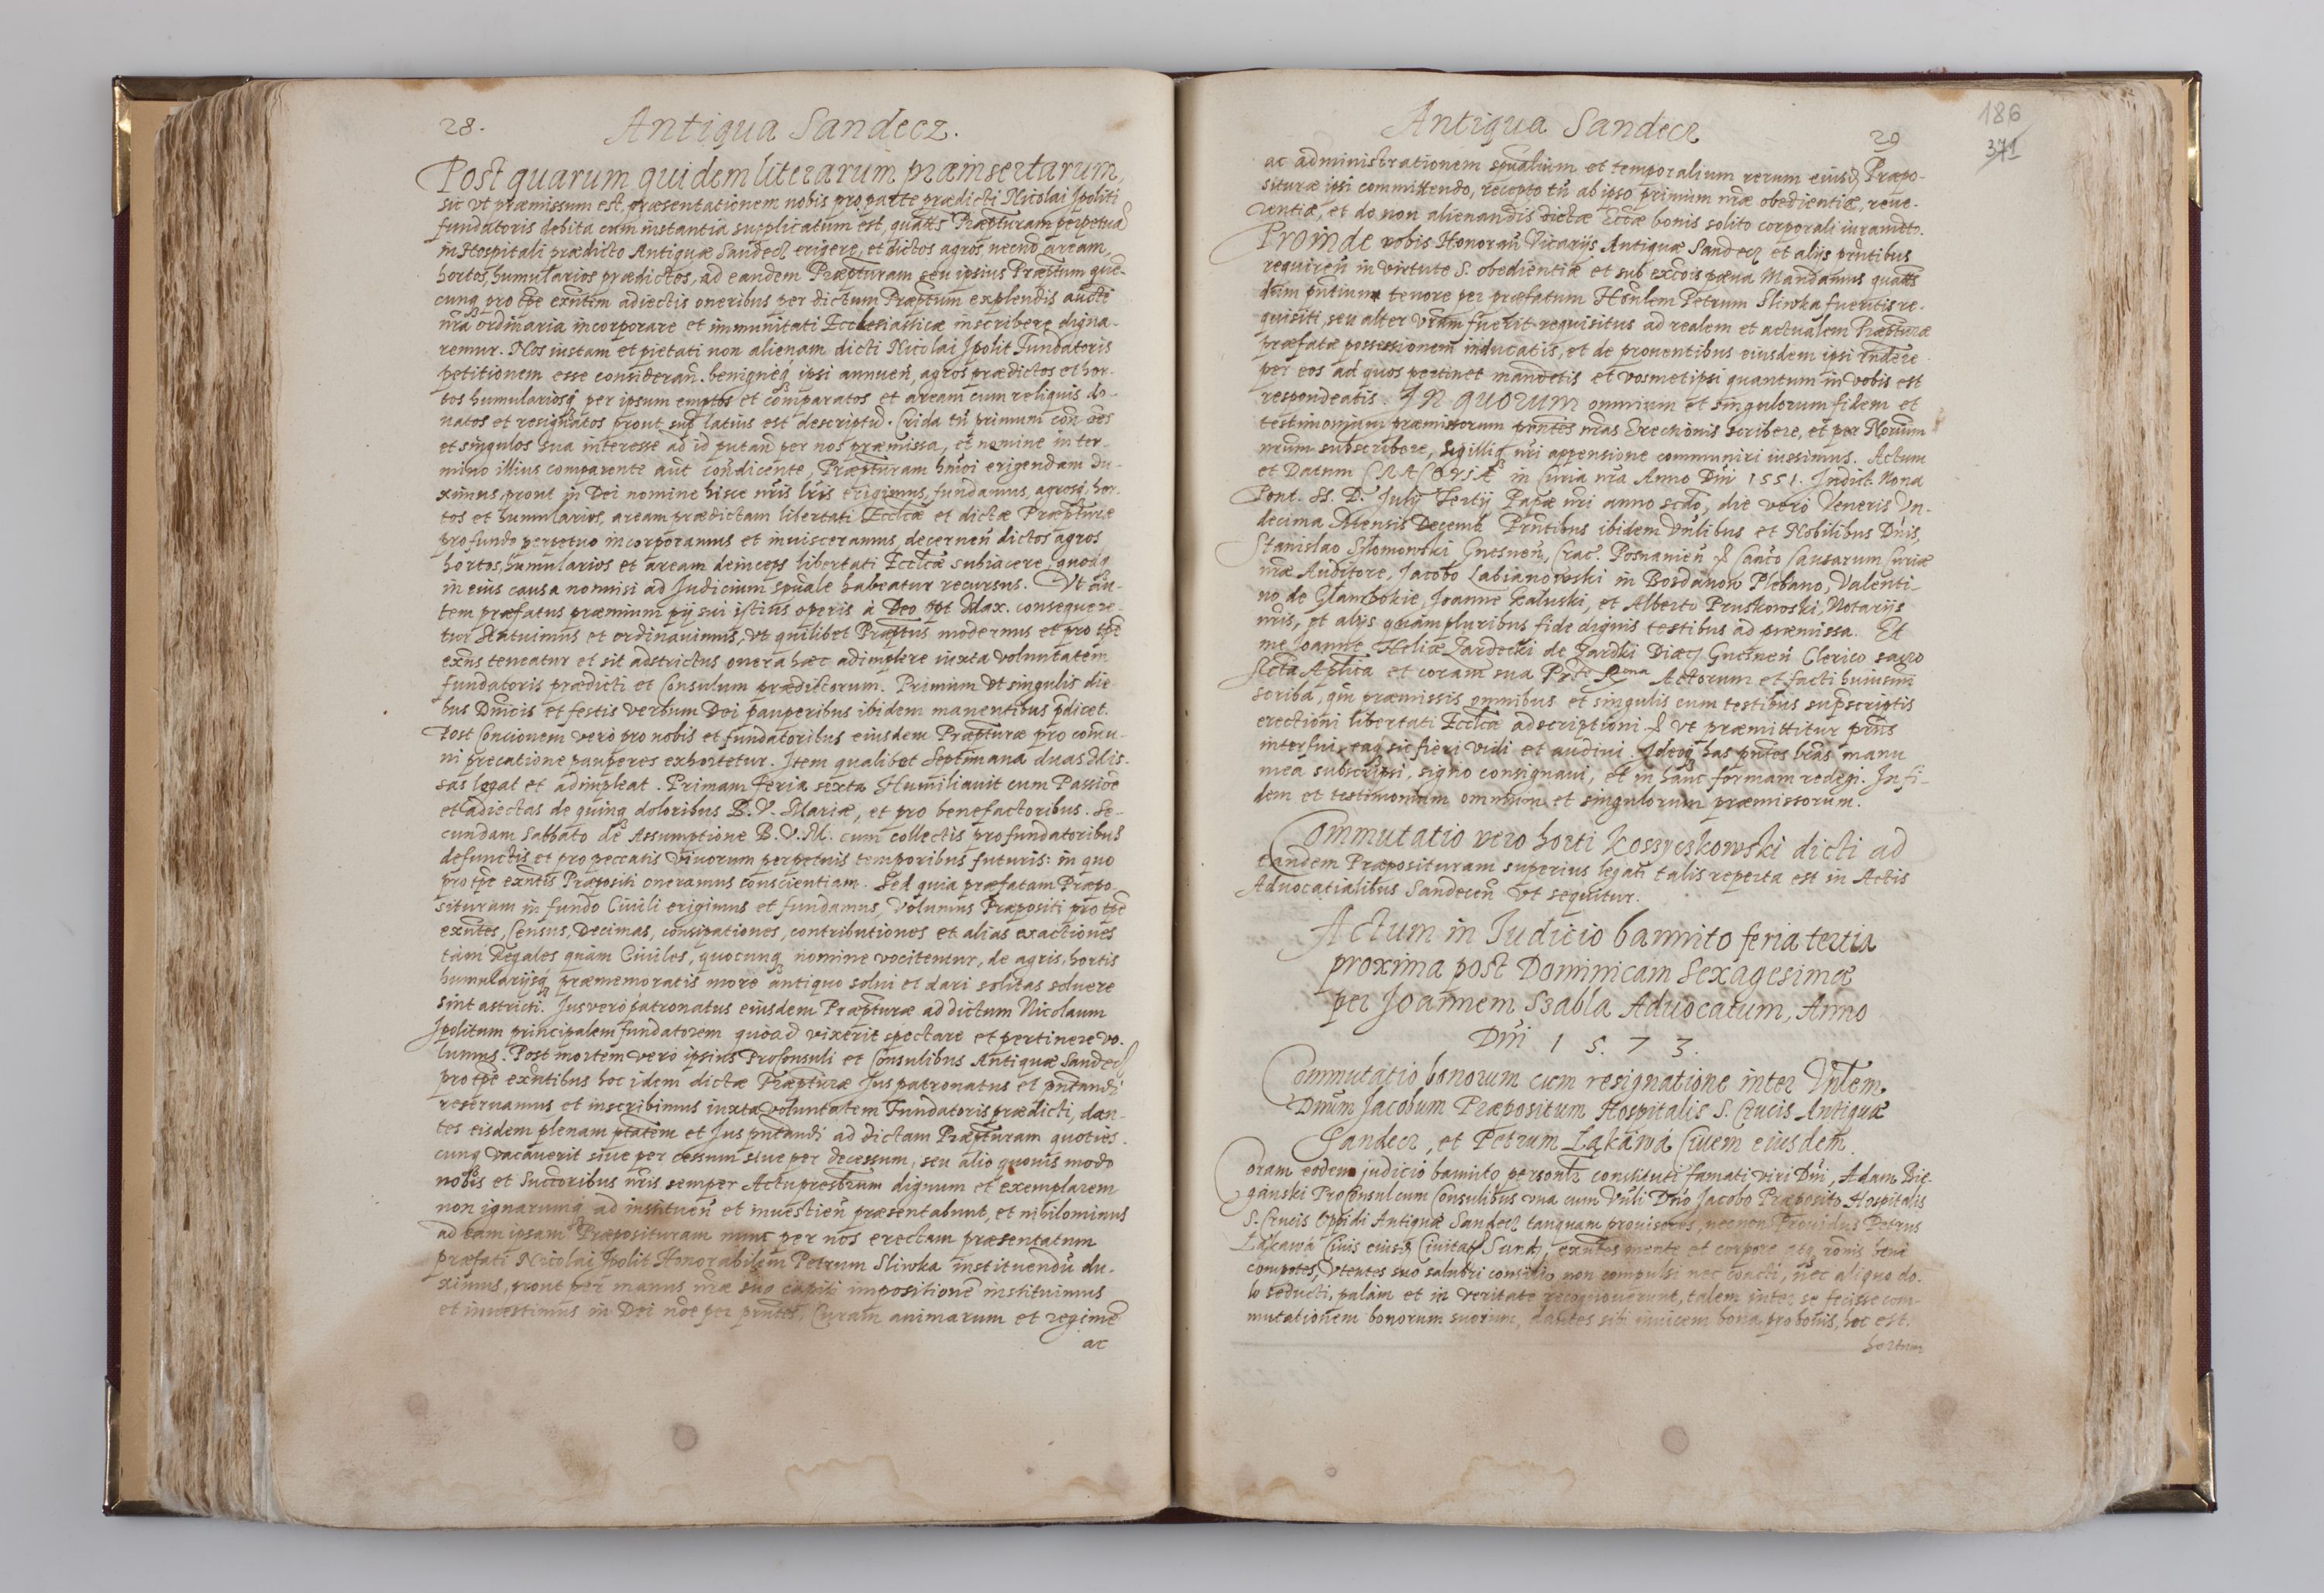 28.
Antiqua Sandecz.
Post quarum quidem literarum præinsertarum,
sic vt præmissum est, præsentationem nobis pro parte prædicti Nicolai Jpoliti
fundatoris debita cum instantia supplicatum est, quatts Præpturam perpetuã
in Hospitali prædicto Antiquæ Sandecz erigere, et dictos agros necnõ aream
hortos, humularios prædictos, ad eandem Præpturam seu ipsius Præptum quẽ-
cunq pro tpe exñtem adiectis oneribus per dictum Præptum explendis aucte
nrã ordinaria incorporare et immunitati Ecclesiasticæ inscribere digna-
remur. Nos iustam et pietati non alienam dicti Nicolai Jpolit Fundatoris
petitionem esse consideran̄. benigneq ipsi annuen̄, agros prædictos et hor-
tos humulariosq per ipsum emptos et comparatos et aream cum reliquis do-
natos et resignatos prout sup latius est descriptũ. Crida tñ primum con̄ oẽs
et singulos sua interesse ad id putan̄ per nos præmissa, et nemine in ter-
mino illius comparente aut condicente, Præpturam hmõi erigendam du-
ximus, prout in Dei nomine hisce nr̃is lr̃is erigimus, fundamus, agrosq hor-
tos et humularios, aream prædictam libertati Eccl̃cæ et dictæ Præpturæ
pro fundo perpetuo incorporamus et inuisceramus, decernen̄ dictos agros
hortos, humularios et aream deinceps libertati Eccl̃cæ subiacere, quodq
in eius causa nonnisi ad Judicium spũale habeatur recursus. Vt au-
tem præfatus præmium pij sui istius operis à Deo Opt Max. consequere-
tur Statuimus et ordinauimus, vt quilibet Præptus modernus et pro tpe
exñs teneatur et sit adstrictus onera hæc adimplere iuxta voluntatem
fundatoris prædicti et Consulum prædictorum. Primum vt singulis die-
bus Dñicis et festis verbum Dei pauperibus ibidem manentibus p̃dicet.
Post Concionem verò pro nobis et fundatoribus eiusdem Præpturæ pro comu-
ni precatione pauperes exhortetur. Item qualibet Septimana duas Mis-
sas legat et adimpleat. Primam feria sexta Humiliauit cum Passiõe
et adiectas de quinq doloribus B. V. Mariæ, et pro benefactoribus. Se-
cundam Sabbato de Assumptione B. V. M. cum collectis pro fundatoribus
defunctis et pro peccatis viuorum perpetuis temporibus futuris: in quo
pro tpe exñtis Præpositi oneramus conscientiam. Sed quia præfatam Præpo-
situram in fundo Ciuili erigimus et fundamus, Volumus Præpositi pro tpe
exñtes, Census, Decimas, contributiones et alias exactiones
tàm Regales quàm Ciuiles, quocunq nomine vocitentur, de agris, hortis
humularijsq præmemoratis more antiquo solui et dari solitas soluere
sint astricti. Jus verò patronatus eiusdem Præpturæ ad dictum Nicolaum
Jpolitum principalem fundatorem quoad vixerit spectare et pertinere vo-
lumus. Post mortem verò ipsius Proconsuli et Consulibus Antiquæ Sandecz
pro tpe exñtibus hoc idem dictæ Præpturæ Jus patronatus et pñtandi
reseruamus et inscribimus iuxta voluntatem Fundatoris prædicti, dan-
tes eisdem plenam ptatem et Jus pñtandi ad dictam Præpturam quoties-
cunq vacauerit siue per cessum siue per decessum, seu alio quouis modo
nobis et Succoribus nr̃is semper Actu presbrum dignum et exemplarem
non ignarumq ad instituen̄ et inuestien̄ præsentabunt, et nihilominus
ad eam ipsam Præposituram nunc per nos erectam præsentatum
præfati Nicolai Jpolit Honorabilem Petrum Sliwka instituendũ du-
ximus, prout per manus nr̃æ suo capiti impositionẽ instituimus
et inuestimus in Dei nõe per pñtes, Curam animarum et regimẽ
ac
Antiqua Sandecz
29
186
371
ac administrationem spũalium et temporalium rerum eiusd Præpo-
situræ ipsi committendo, recepto tñ ab ipso primum nr̃æ obedientiæ, reue-
rentiæ, et de non alienandis dictæ Eccl̃æ bonis solito corporali iuramẽto.
Proinde vobis Honoran̄ Vicarijs Antiquæ Sandecz et alijs pñtibus
requiren̄ in virtute S. obedientiæ et sub excõis pæna Mandamus quatts
dum pñtium tenore per præfatum Honlem Petrum Sliwka fueritis re-
quisiti, seu alter vrũm fuerit requisitus ad realem et actualem Præpturæ
præfatæ possessionem inducatis, et de prouentibus eiusdem ipsi rñdere
per eos ad quos pertinet mandetis et vosmetipsi quantum in vobis est
respondeatis. In quorum omnium et singulorum fidem et
testimonium præmissorum pñtes nr̃as Erectionis scribere, et per Norium
nrũm subscribere, Sigilliq nr̃i appensione communiri iussimus. Actum
et Datum CRACOVIÆ in Curia nrã Anno Dñi 1551. Indict. Nona
Pont. SS. D. Julij Tertij Papæ nr̃i anno scdo, die verò Veneris Vn-
decima Mensis Decemb. Pñtibus ibidem Vnlibus et Nobilibus Dñis,
Stanislao Słomowski Gnesnen̄, Crac. Posnanien̄ Canco Causarum Curiæ
nr̃æ Auditore, Jacobo Labianowski in Bogdanow Plebano, Valenti-
no de Głambokie, Joanne Załuski, et Alberto Pruskowski, Notarijs
nr̃is, et alijs quàmpluribus fide dignis testibus ad præmissa. Et
me Joanne Heliæ Zardecki de Zardki Diæc Gnesnen̄ Clerico sacro
Sctã Aplica et coram sua Prte Rma Actorum et facti huiusm̃
scriba, qui præmissis omnibus et singulis cum testibus supscriptis
erectioni libertati Eccl̃cæ adscriptioni vt præmittitur pñs
interfui, eaq sic fieri vidi et audiui. Ideoq has pñtes lrãs manu
mea subscripsi, signo consignaui, et in hanc formam redegi. In fi-
dem et testimonium omnium et singulorum præmissorum.
Commutatio vero horti Kossyczkowski dicti ad
eandem Præposituram superius legati talis reperta est in Actis
Aduocatialibus Sandecen̄ vt sequitur.
Actum in Iudicio bannito feria tertia
proxima post Dominicam Sexagesimæ
per Joannem Szabla Aduocatum, Anno
Dñi 1 5. 7 3.
Commutatio bonorum cum resignatione inter Vnlem
Dnũm Jacobum Præpositum Hospitalis S. Crucis Antiquæ
Sandecz, et Petrum Łąkawá Ciuem eiusdem.
Coram eodem judicio bannito personlr constituti famati viri Dñi, Adam Bie-
gánski Proconsul cum Consulibus vna cum Vnli Dño Jacobo Præposito Hospitalis
S. Crucis Oppidi Antiquæ Sandecz tanquam prouisores, necnon Prouidus Petrus
Łąkawá Ciuis eiusd Ciuitat Sand, exñtes mente et corpore atq rõnis benè
compotes, vtentes suo salubri consilio, non compulsi nec coacti, nec aliquo do-
lo seducti, palàm et in veritate recognouerunt, talem inter se fecisse com-
mutationem bonorum suorum, dantes sibi inuicem bona pro bonis, hoc est.
hortum